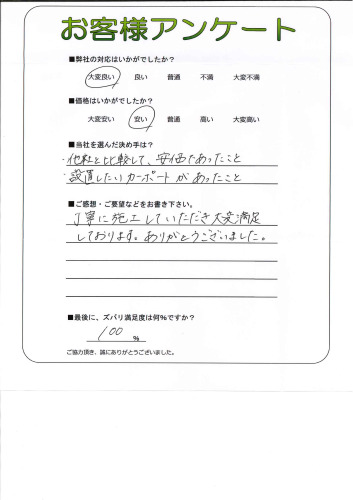 お客様アンケート
■弊社の対応はいかがでしたか?
大変良い 良い 普通 不満 大変不満
■価格はいかがでしたか?
大変安い 安い 普通 高い 大変高い
■当社を選んだ決め手は?
・他社と比較して、安価であったこと
・設置したいカーポートがあったこと
■ご感想・ご要望などをお書き下さい。
丁寧に施工していただき大変満足
しております。ありがとうございました。
■最後に、ズバリ満足度は何%ですか?
100 %
ご協力頂き、誠にありがとうございました。